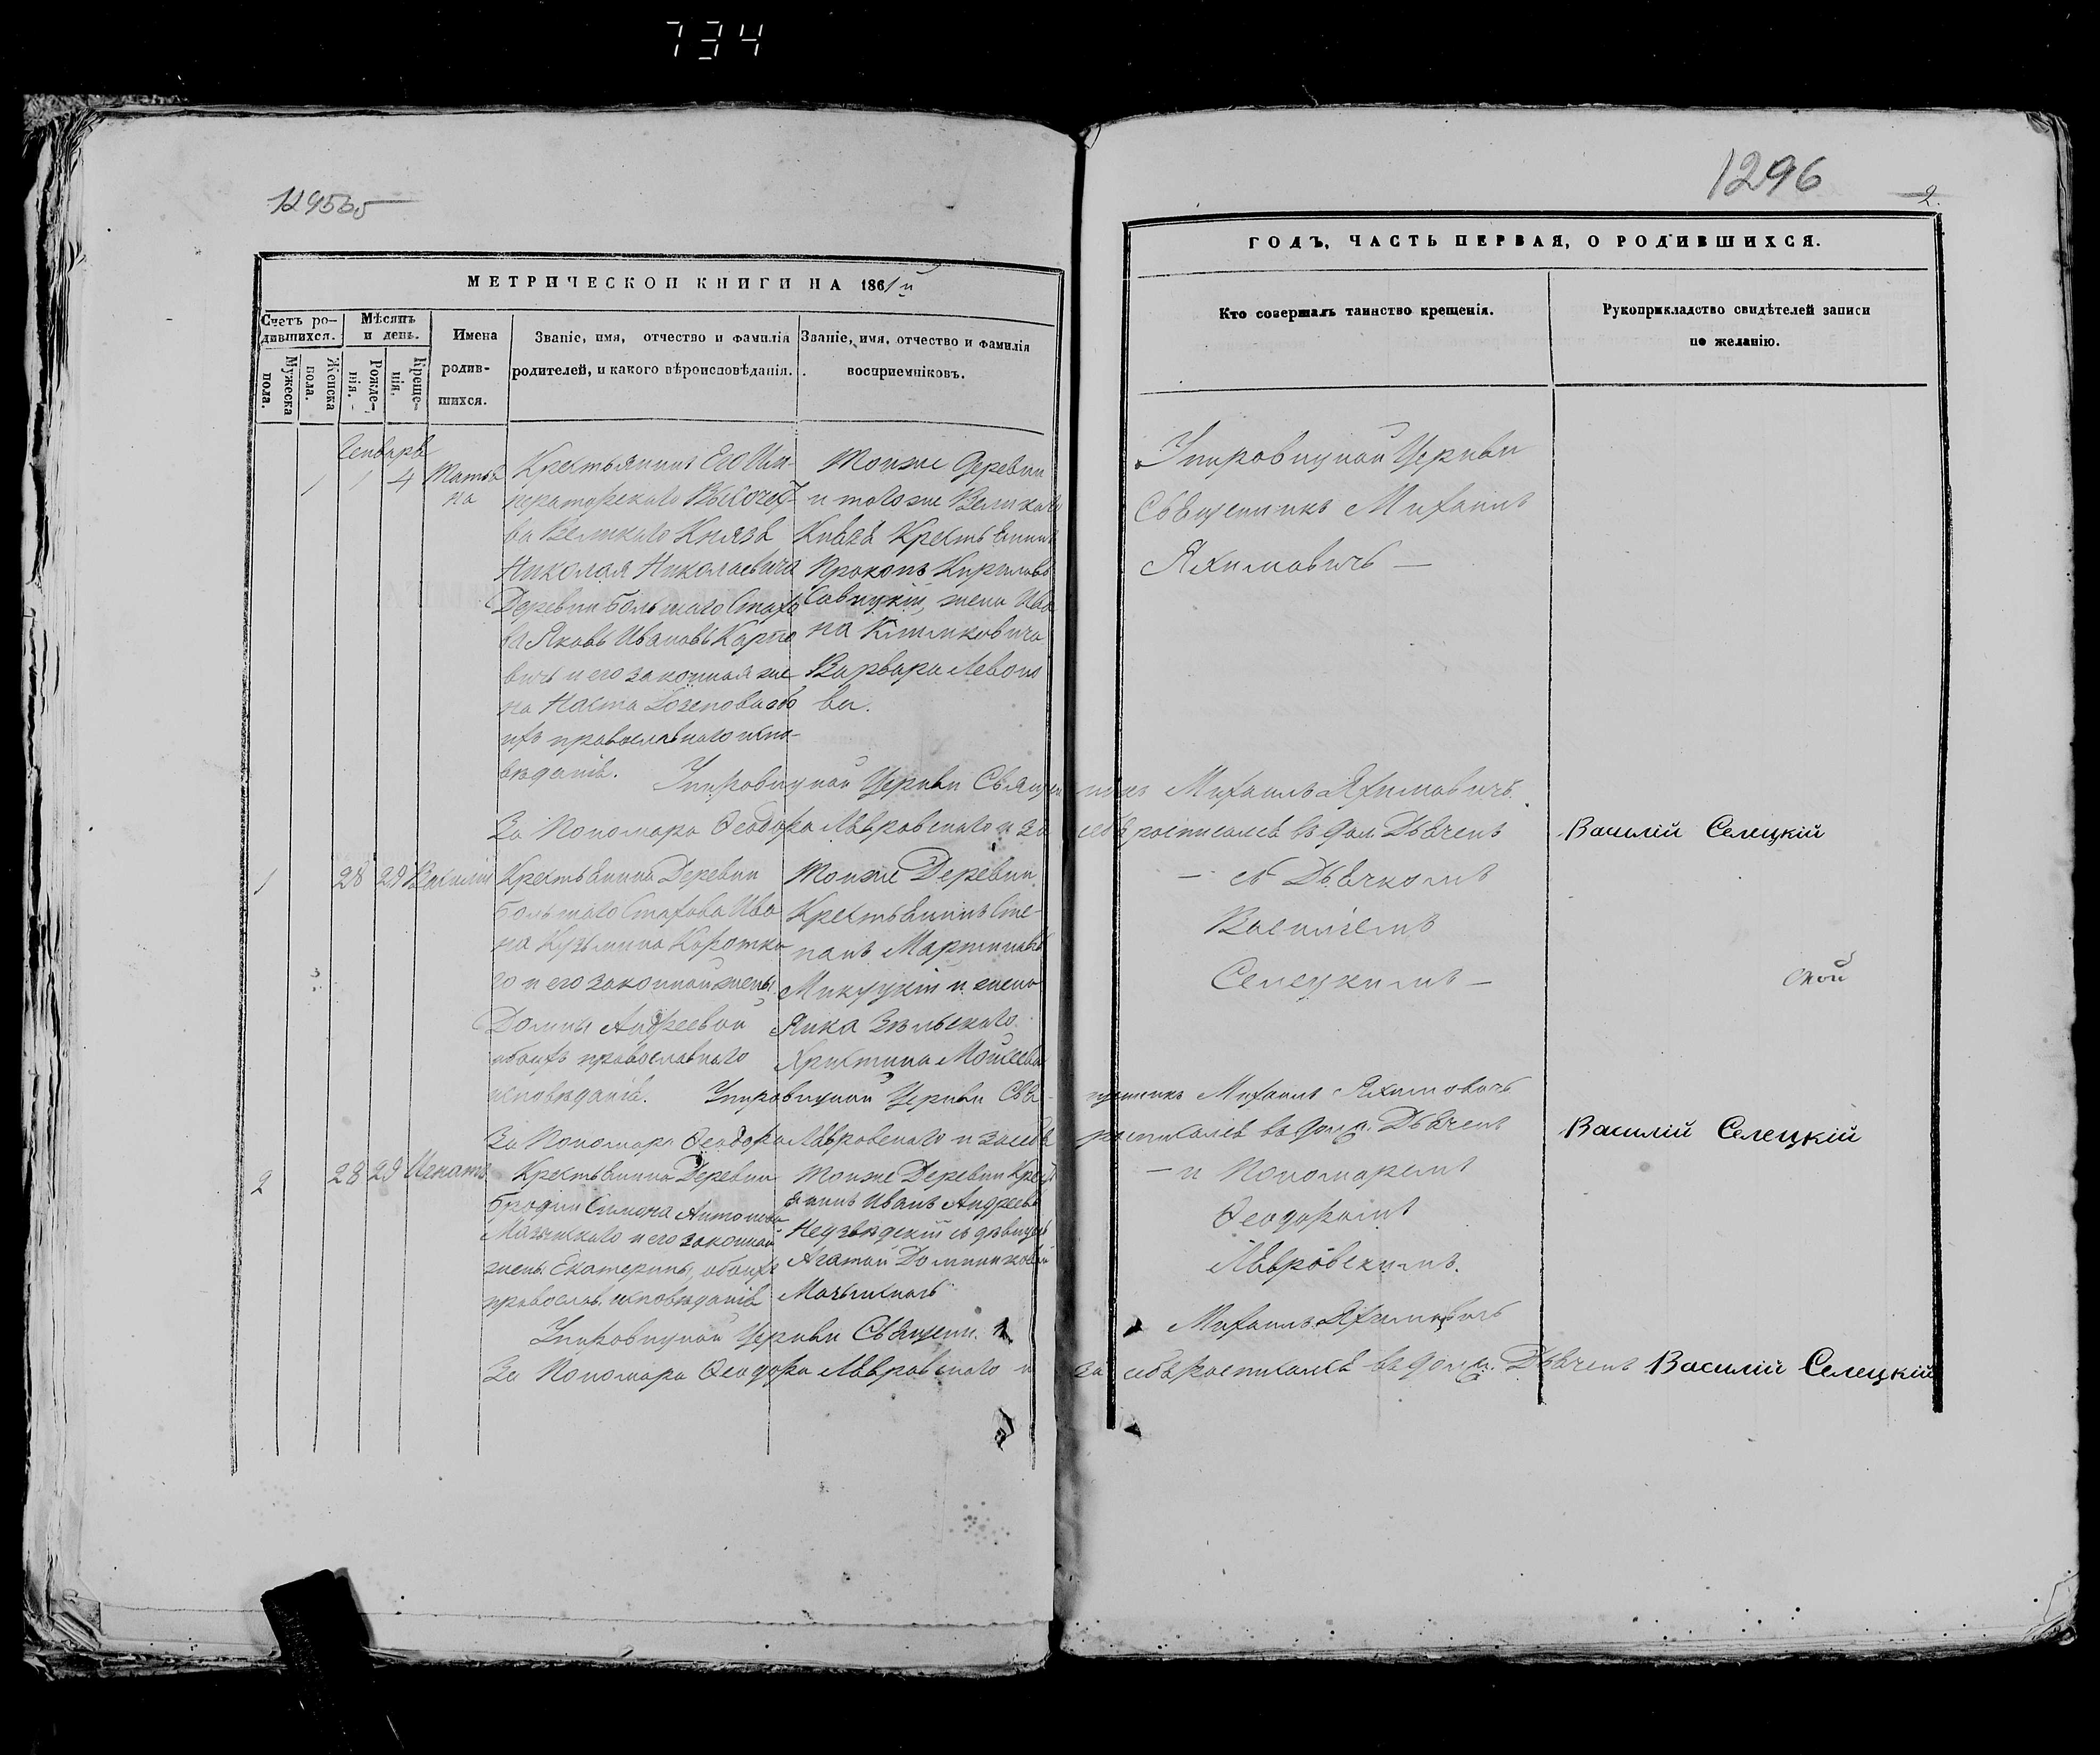 734
1296
2.
МЕТРИЧЕСКОЙ КНИГИ НА 1861й
ГОДЪ, ЧАСТЬ ПЕРВАЯ, О РОДИВШИХСЯ.
Счетъ ро-
дившихся.
Мужеска
пола.
Женска
пола.
Мѣсяцъ
и день.
Рожде-
нія.
Креще-
нія.
Имена
родив-
шихся.
Званіе, имя, отчество и фамилія
родителей, и какого вѣроисповѣданія.
Званіе, имя, отчество и фамилія
восприемніковъ.
Кто совершалъ таинство крещенія.
Рукоприкладство свидѣтелей записи
по желанію.
Генваря
1 1 4
Крестьянинъ Его Им-
ператорскаго Высочест-
ва Великаго Князя
Николая Николаевича
Деревни Большаго Стахо
ва Яковъ Ивановъ Карпо
вичъ и его законная же
на Наста обо
ихъ православнаго испо-
вѣданія.
Тойже Деревни
и тогоже Великаго
Князя Крестьянинъ
Прокопъ Кириловъ
Савицкій, жена Ива
на Климковича
Варвара Левоно
ва.
Церкви
Священникъ Михаилъ
Яхимовичъ —
Церкви Священникъ Михаилъ Яхимовичъ.
За Пономаря Ѳеодора Лавровскаго и за себя росписался въ дол. Дьячекъ Василій Селецкій
1 28 29 Василій
Крестьянина Деревни
Большаго Стахова Ива
на Кузьмина Коротка
го и его законной жены
Домны Андреевой
обоихъ православнаго
исповѣданія.
Тойже Деревни
Крестьянинъ Сте-
панъ Мартиновъ
и жена
Янка
Христина Моисеева
— съ Дьячкомъ
Василіемъ
Селецкимъ —
Церкви Священникъ Михаилъ Яхимовичъ
За Пономаря Ѳеодора Лавровскаго и засебя росписался въ долж. Дьячекъ Василій Селецкій
2 28 29 Игнатъ
Крестьянина Деревни
Симона Антонова
и его законной
жены Екатерины, обоихъ
православ. исповѣданія
Тойже Деревни Крест
янинъ Иванъ Андреевъ
Недзвѣдскій съ дѣвицею
Агатой Доминиковой
— и Пономаремъ
Ѳеодоромъ
Лавровскимъ.
Церкви Священн. Михаилъ Яхимовичъ
За Пономаря Ѳеодора Лавровскаго и за себя росписался въ долж. Дьячекъ Василій Селецкій